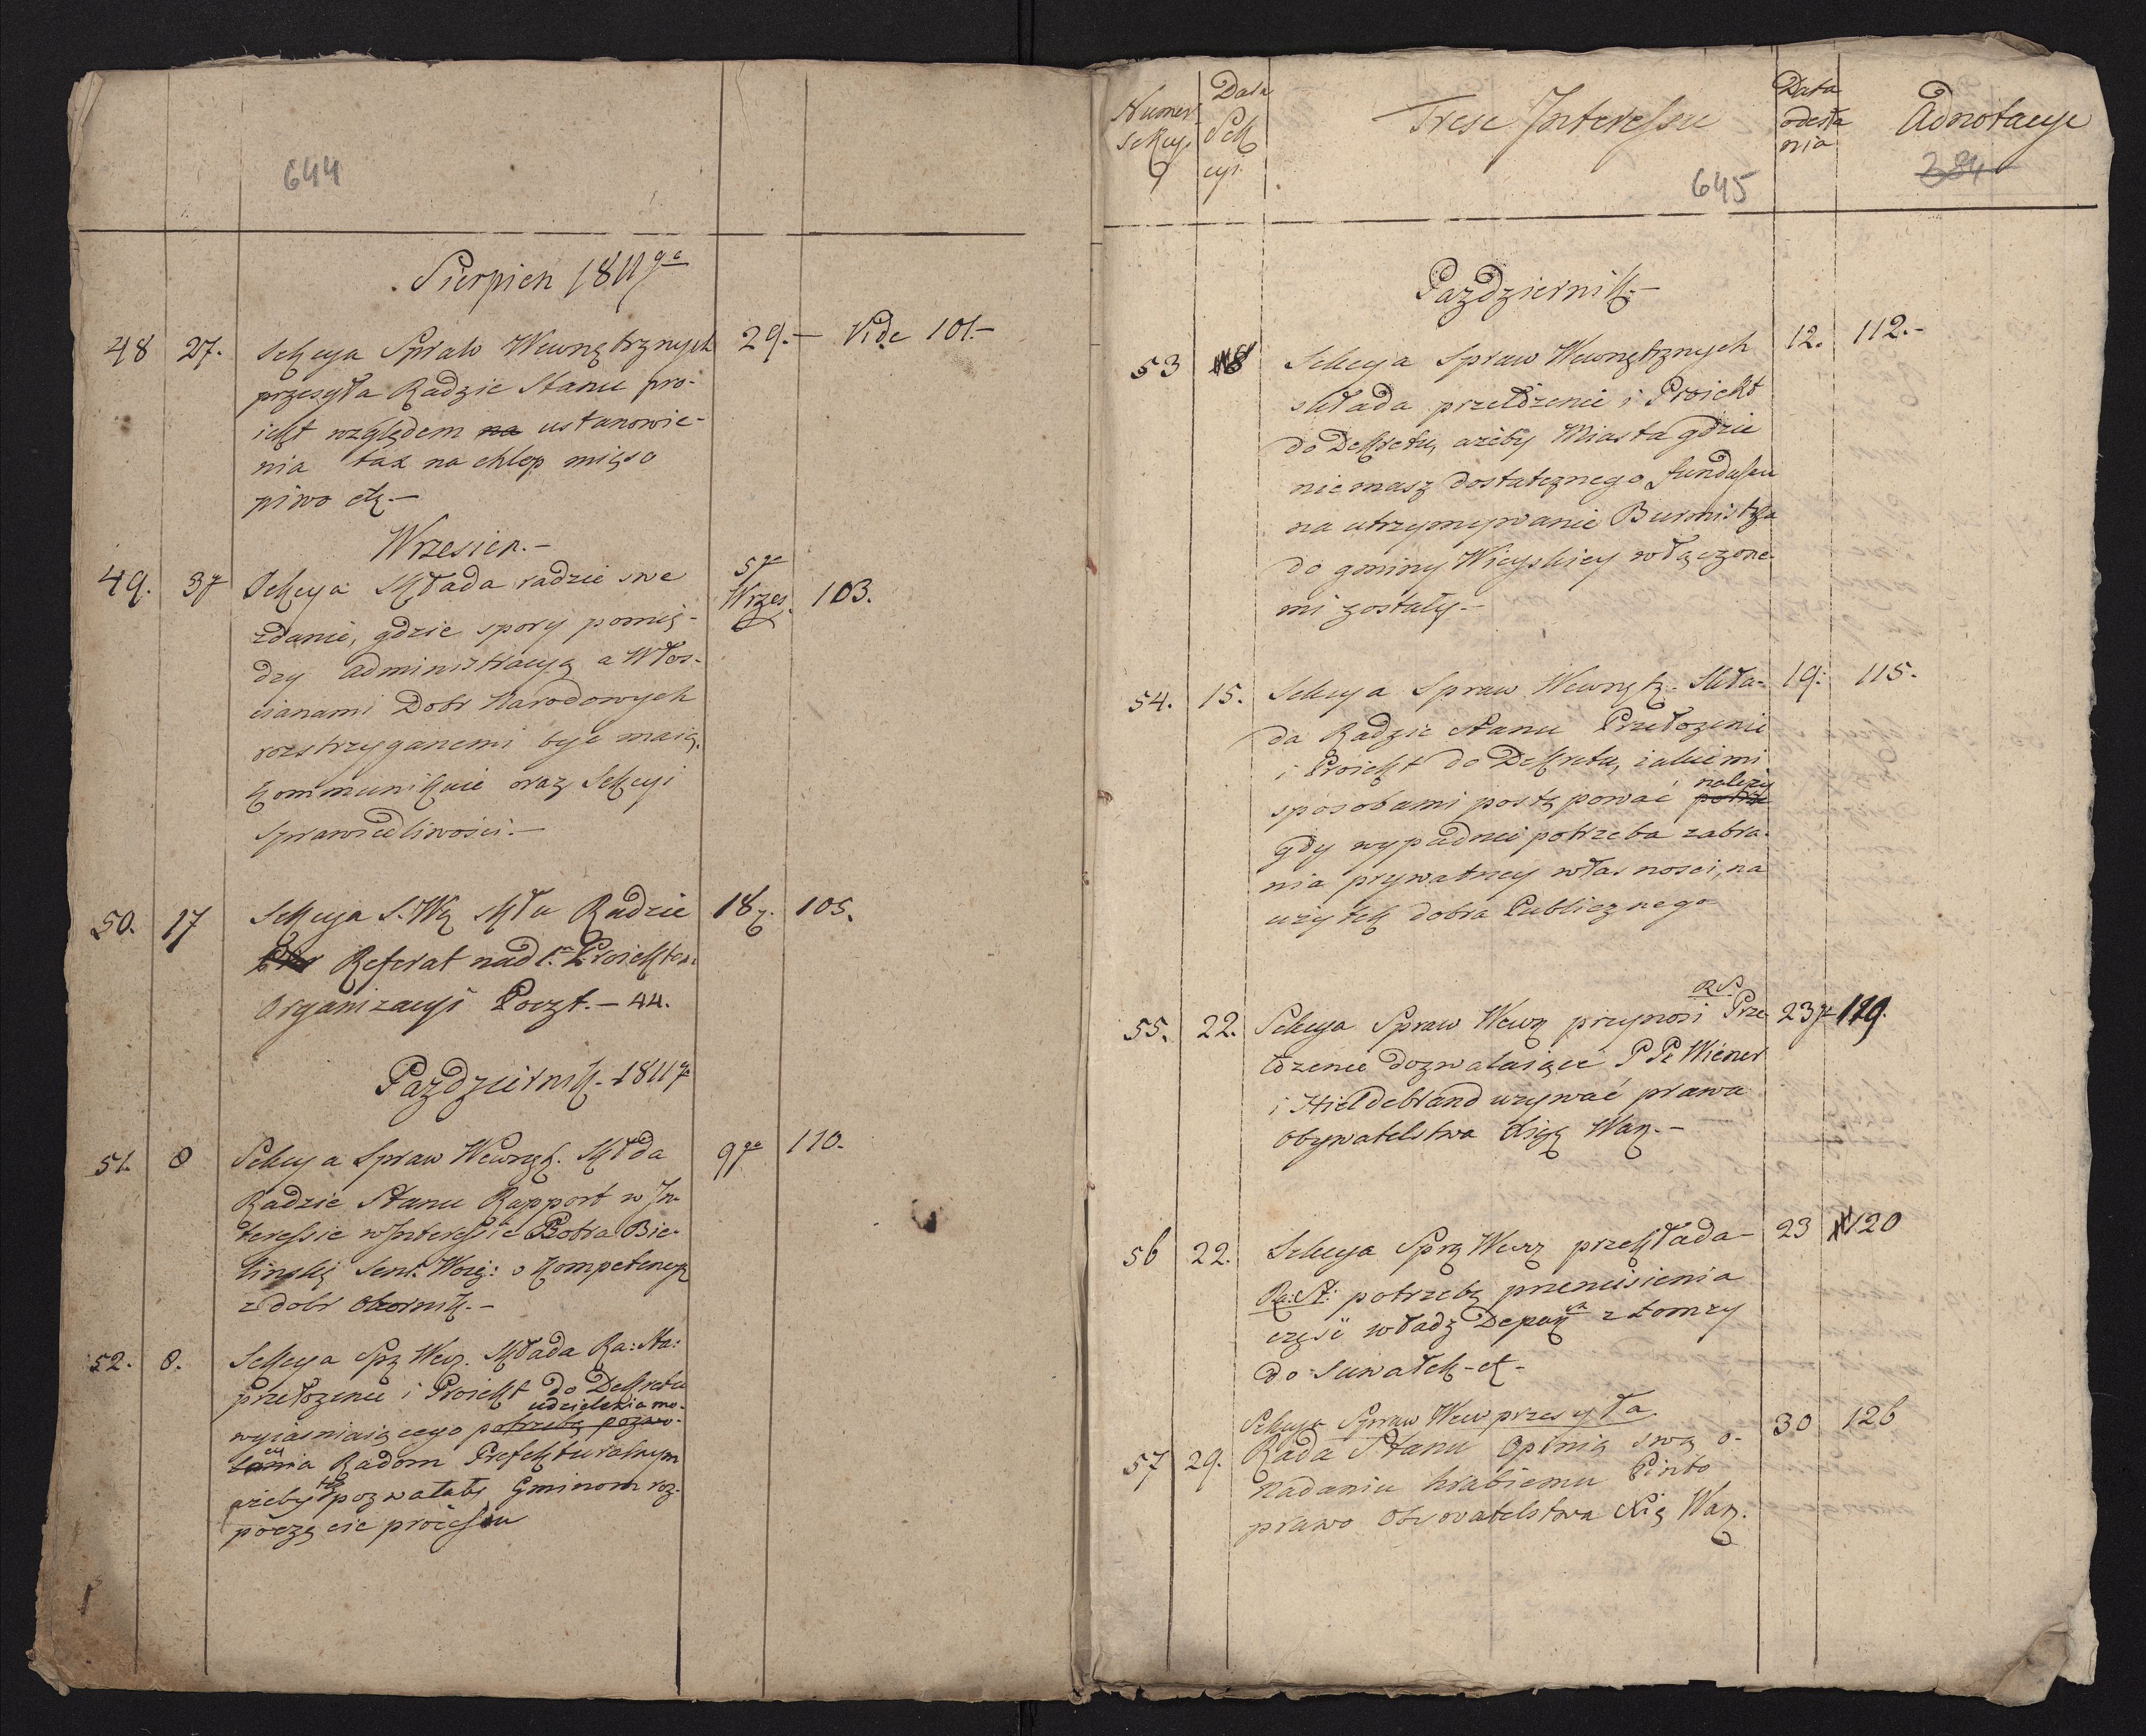 644
Sierpien 1811 go
48 27. Sekcya Spraw Wewnętrznych 29.– Vide 101.–
przesyła Radzie Stanu pro-
iekt względem na ustanowie-
nia tax na chleb mięso
piwo etc.–
Wrzesien.–
49. 3go Sekcya składa radzie swe 5go Wrzes. 103.
zdanie, gdzie spory pomię-
dzy administracyą a Włos-
cianami Dobr Narodowych
rozstrzyganemi bydź maią.
kommunikuie oraz Sekcyi
Sprawiedliwosci.–
50. 17 Sekcya S. W. skła Radzie 18 105.
Referat nad Proiektem
Organizacyi Poczt.– 44.
Pazdziernik.– 1811 go
51. 8 Sekcya Spraw Wewnęt. Składa 9go 110.
Radzie Stanu Rapport w In-
teressie w Interessie Piotra Bie-
linskie Sena. Woie: o kompetencyą
z dobr Obornik.–
52. 8. Sekcya Sp. Wew. składa Ra: Sta:
przełozenie i Proiekt do Dekretu
udzielenia mo-
wyiasniaiącego potrzebę pozwo-
cy
lenia Radom Prefekturalnym
azeby pozwalały Gminom roz-
poczęcie processu
Numer Sekcyi
Data Sekcyi
Tresc Interessu
Data odesłania
Adnotacye
645
284
Pazdziernik.–
53 8 Sekcya Spraw Wewnętrznych 12. 112.–
składa przełożenie i Proiekt
do Dekretu, ażeby Miasta gdzie
nie masz dostatecznego funduszu
na utrzymywanie Burmistrza
do gminy Wieyskiey włączone-
mi zostały.–
54. 15. Sekcya Spraw Wewnętz. Skła- 19. 115.
da Radzie Stanu Przełozenie
i Proiekt do Dekretu, iakiemi
należy
sposobami postępować potrze
gdy wypadnie potrzeba zabra-
nia prywatney własnosci, na
użytek dobra Publicznego
R S
55. 22. Sekcya Spraw Wew. przynosi Prze- 23go 119.
łozenie dozwalaiące PP. Wiener
i Hieldebrand uzywać prawa
Obywatelstwa Xięz War.–
56 22. Sekcya Spra Wew przekłada– 23 120
Ra: St: potrzebę przeniesienia
częsć władz Depar z Łomzy
do Suwałek – etc –
Sekcya Spraw Wew przesyła
57 29. Rada Stanu Opinią swą o- 30 126
Nadaniu hrabiemu Pinto
prawo Obywatelstwa Xię War.